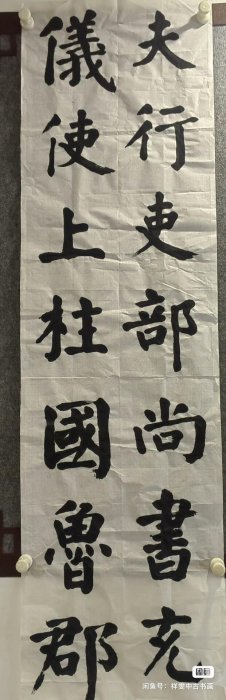 夫行吏部尚書充
儀使上柱國魯郡
闲鱼号：祥雯中古书画